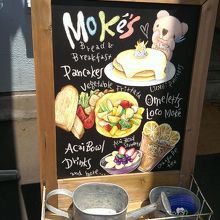 Moké's
Bread &
Breakfast
Pancakes
Vegetable Frittata
Omelette
Loco Moko
Acai Bowl
Drinks